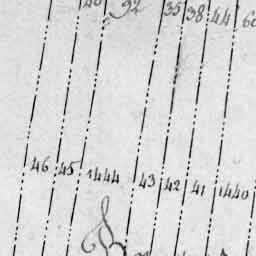 40 92 35 38 44 60
46 45 1444 43 42 41 1440